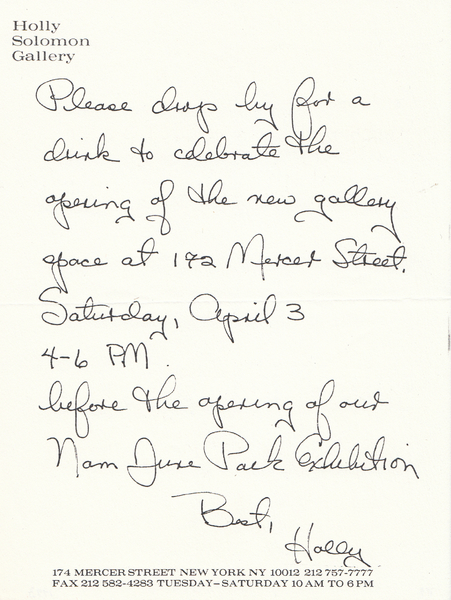 Holly
Solomon
Gallery
Please drop by for a
drink to celebrate the
opening of the new gallery
space at 172 Mercer Street.
Saturday, April 3
4-6 PM.
before the opening of our
Nam June Paik Exhibition
Best,
Holly
174 MERCER STREET NEW YORK NY 10012 212 757-7777
FAX 212 582-4283 TUESDAY–SATURDAY 10 AM TO 6 PM